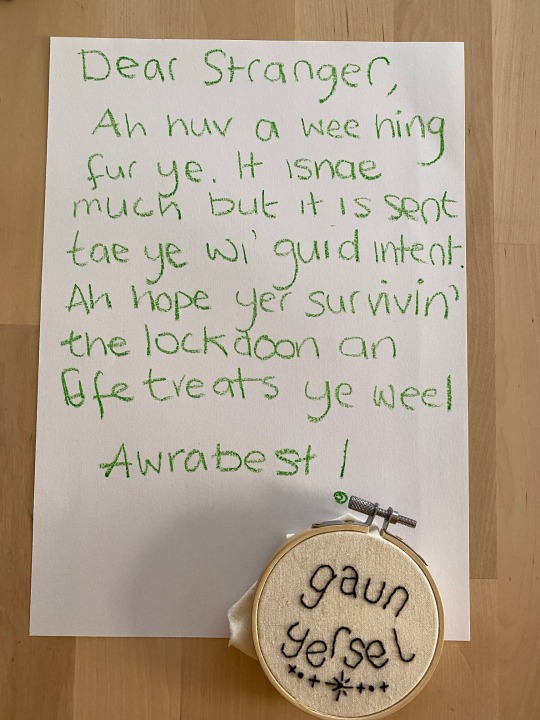 Dear Stranger,
Ah huv a wee hing
fur ye. It isnae
much but it is sent
tae ye wi' guid intent.
Ah hope yer survivin'
the lockdoon an
life treats ye weel
Awrabest!
gaun
yersel